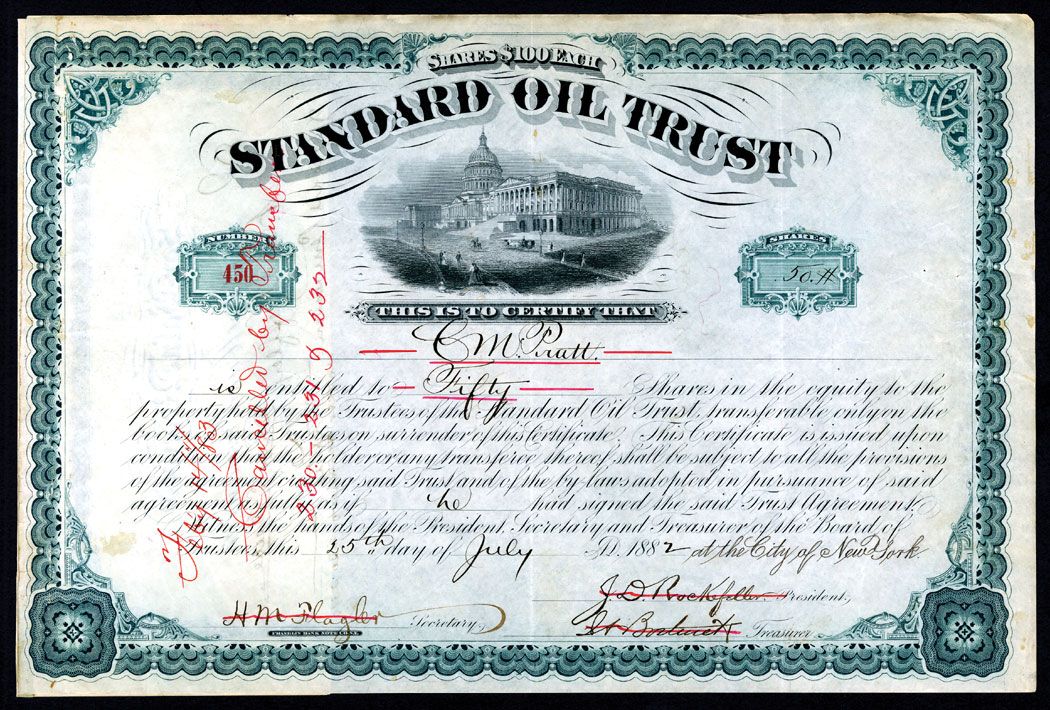 SHARES $100 EACH
STANDARD OIL TRUST
NUMBER
450
SHARES
50.
THIS IS TO CERTIFY THAT
C M. Pratt.
is entitled to Fifty Shares in the equity to the
property held by the Trustees of the Standard Oil Trust, transferable only on the
books of said Trustees on surrender of this Certificate. This Certificate is issued upon
condition that the holder or any transferee thereof shall be subject to all the provisions
of the agreement creating said Trust and of the by-laws adopted in pursuance of said
agreement as fully as if he had signed the said Trust Agreement.
Witness the hands of the President, Secretary and Treasurer of the Board of
Trustees this 25th day of July A.D. 1882 at the City of New York
J. D. Rockefeller. President,
H M Flagler Secretary
Treasurer
FRANKLIN BANK NOTE CO. N.Y.
Cancelled by
230 - 231 & 232